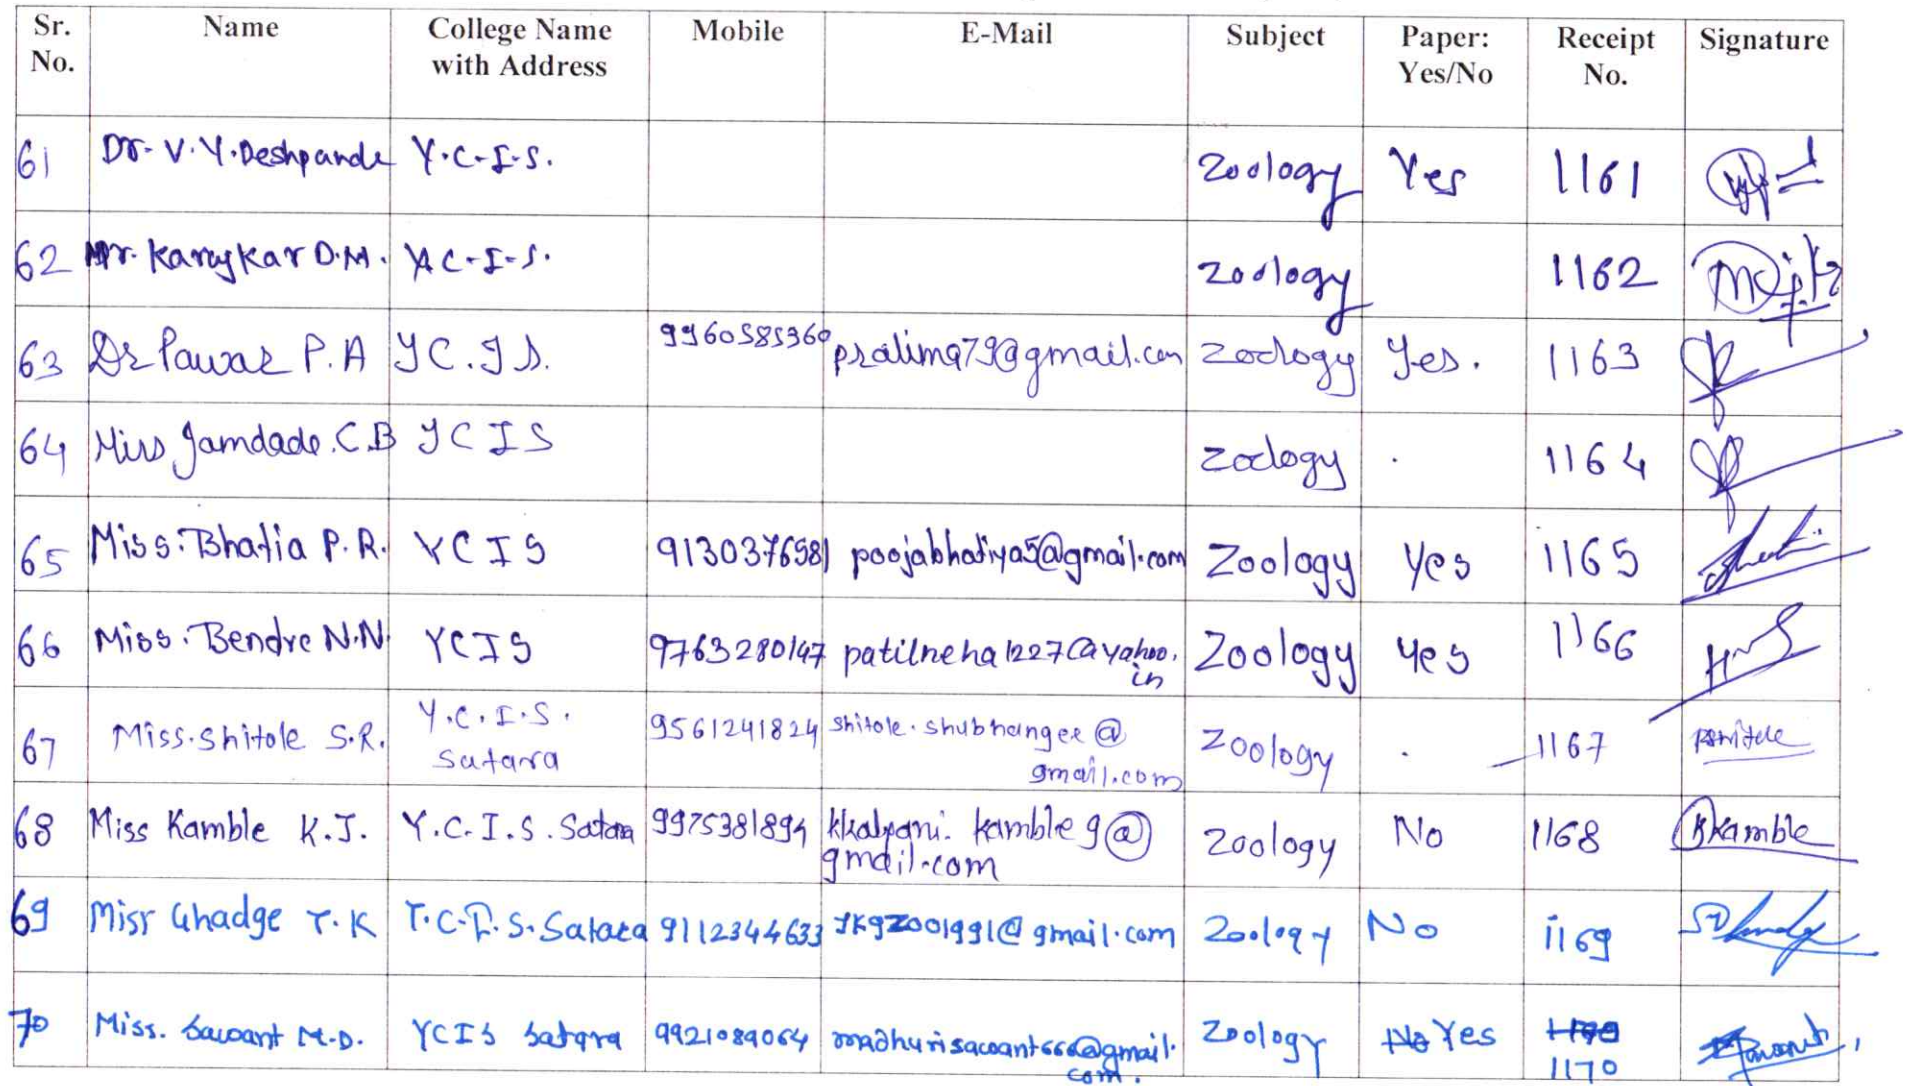 Sr. No. Name College Name with Address Mobile E-Mail Subject Paper: Yes/No Receipt No. Signature
61 Dr. V. Y. Deshpande Y.C.I.S. Zoology Yes 1161
62 Mr. Karajkar D.M. Y.C.I.S. Zoology 1162
63 Dr Pawar P.A YC.IS. 9960585360 pralima79@gmail.com Zoology Yes. 1163
64 Miss Jamdade.C.B YCIS Zoology . 1164
65 Miss. Bhatia P.R. YCIS 9130376581 poojabhatiya5@gmail.com Zoology Yes 1165
66 Miss. Bendre N.N YCIS 9763280147 patilneha1227@yahoo.in Zoology Yes 1166
67 Miss. Shitole S.R. Y.C.I.S. Satara 9561241824 shitole.shubhangee@gmail.com Zoology . 1167 Shitole
68 Miss Kamble K.J. Y.C.I.S. Satara 9975381894 kkalyani.kamble9@gmail.com Zoology No 1168 Kkamble
69 Miss Ghadge Y.K Y.C.I.S. Satara 9112344633 ykgzoo1991@gmail.com Zoology No 1169
70 Miss. Sawant M.D. YCIS Satara 9921089064 madhurisawant666@gmail.com. Zoology No Yes 1170 Sawant